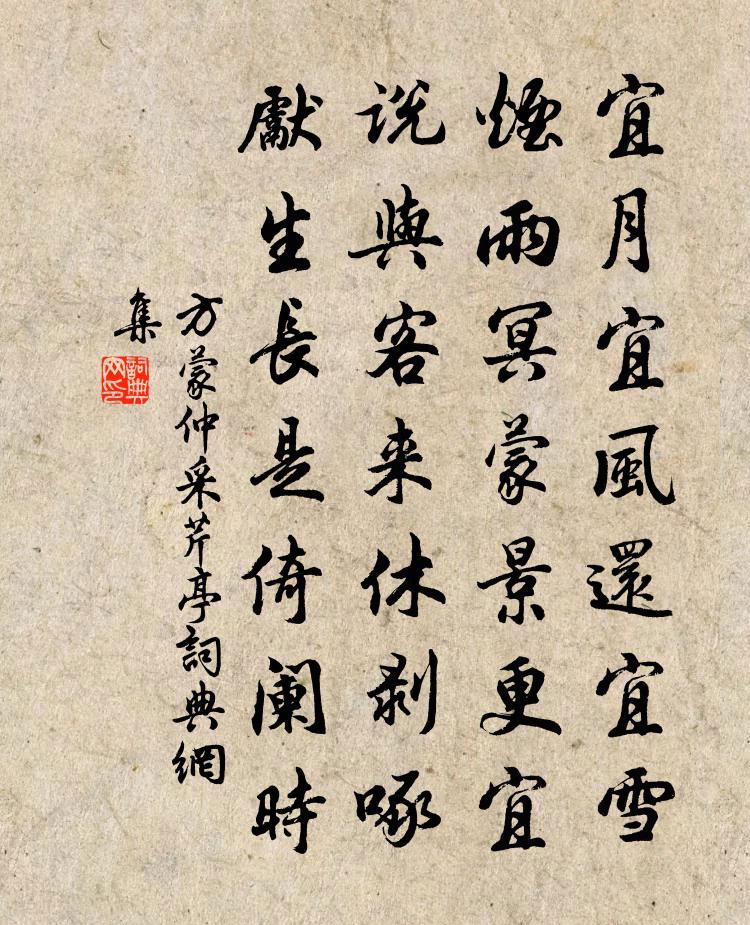 宜月宜風還宜雪
煙雨冥蒙景更宜
説與客来休剥啄
獻生長是倚闌時
方蒙仲采芹亭詞典網
集
詞典网印